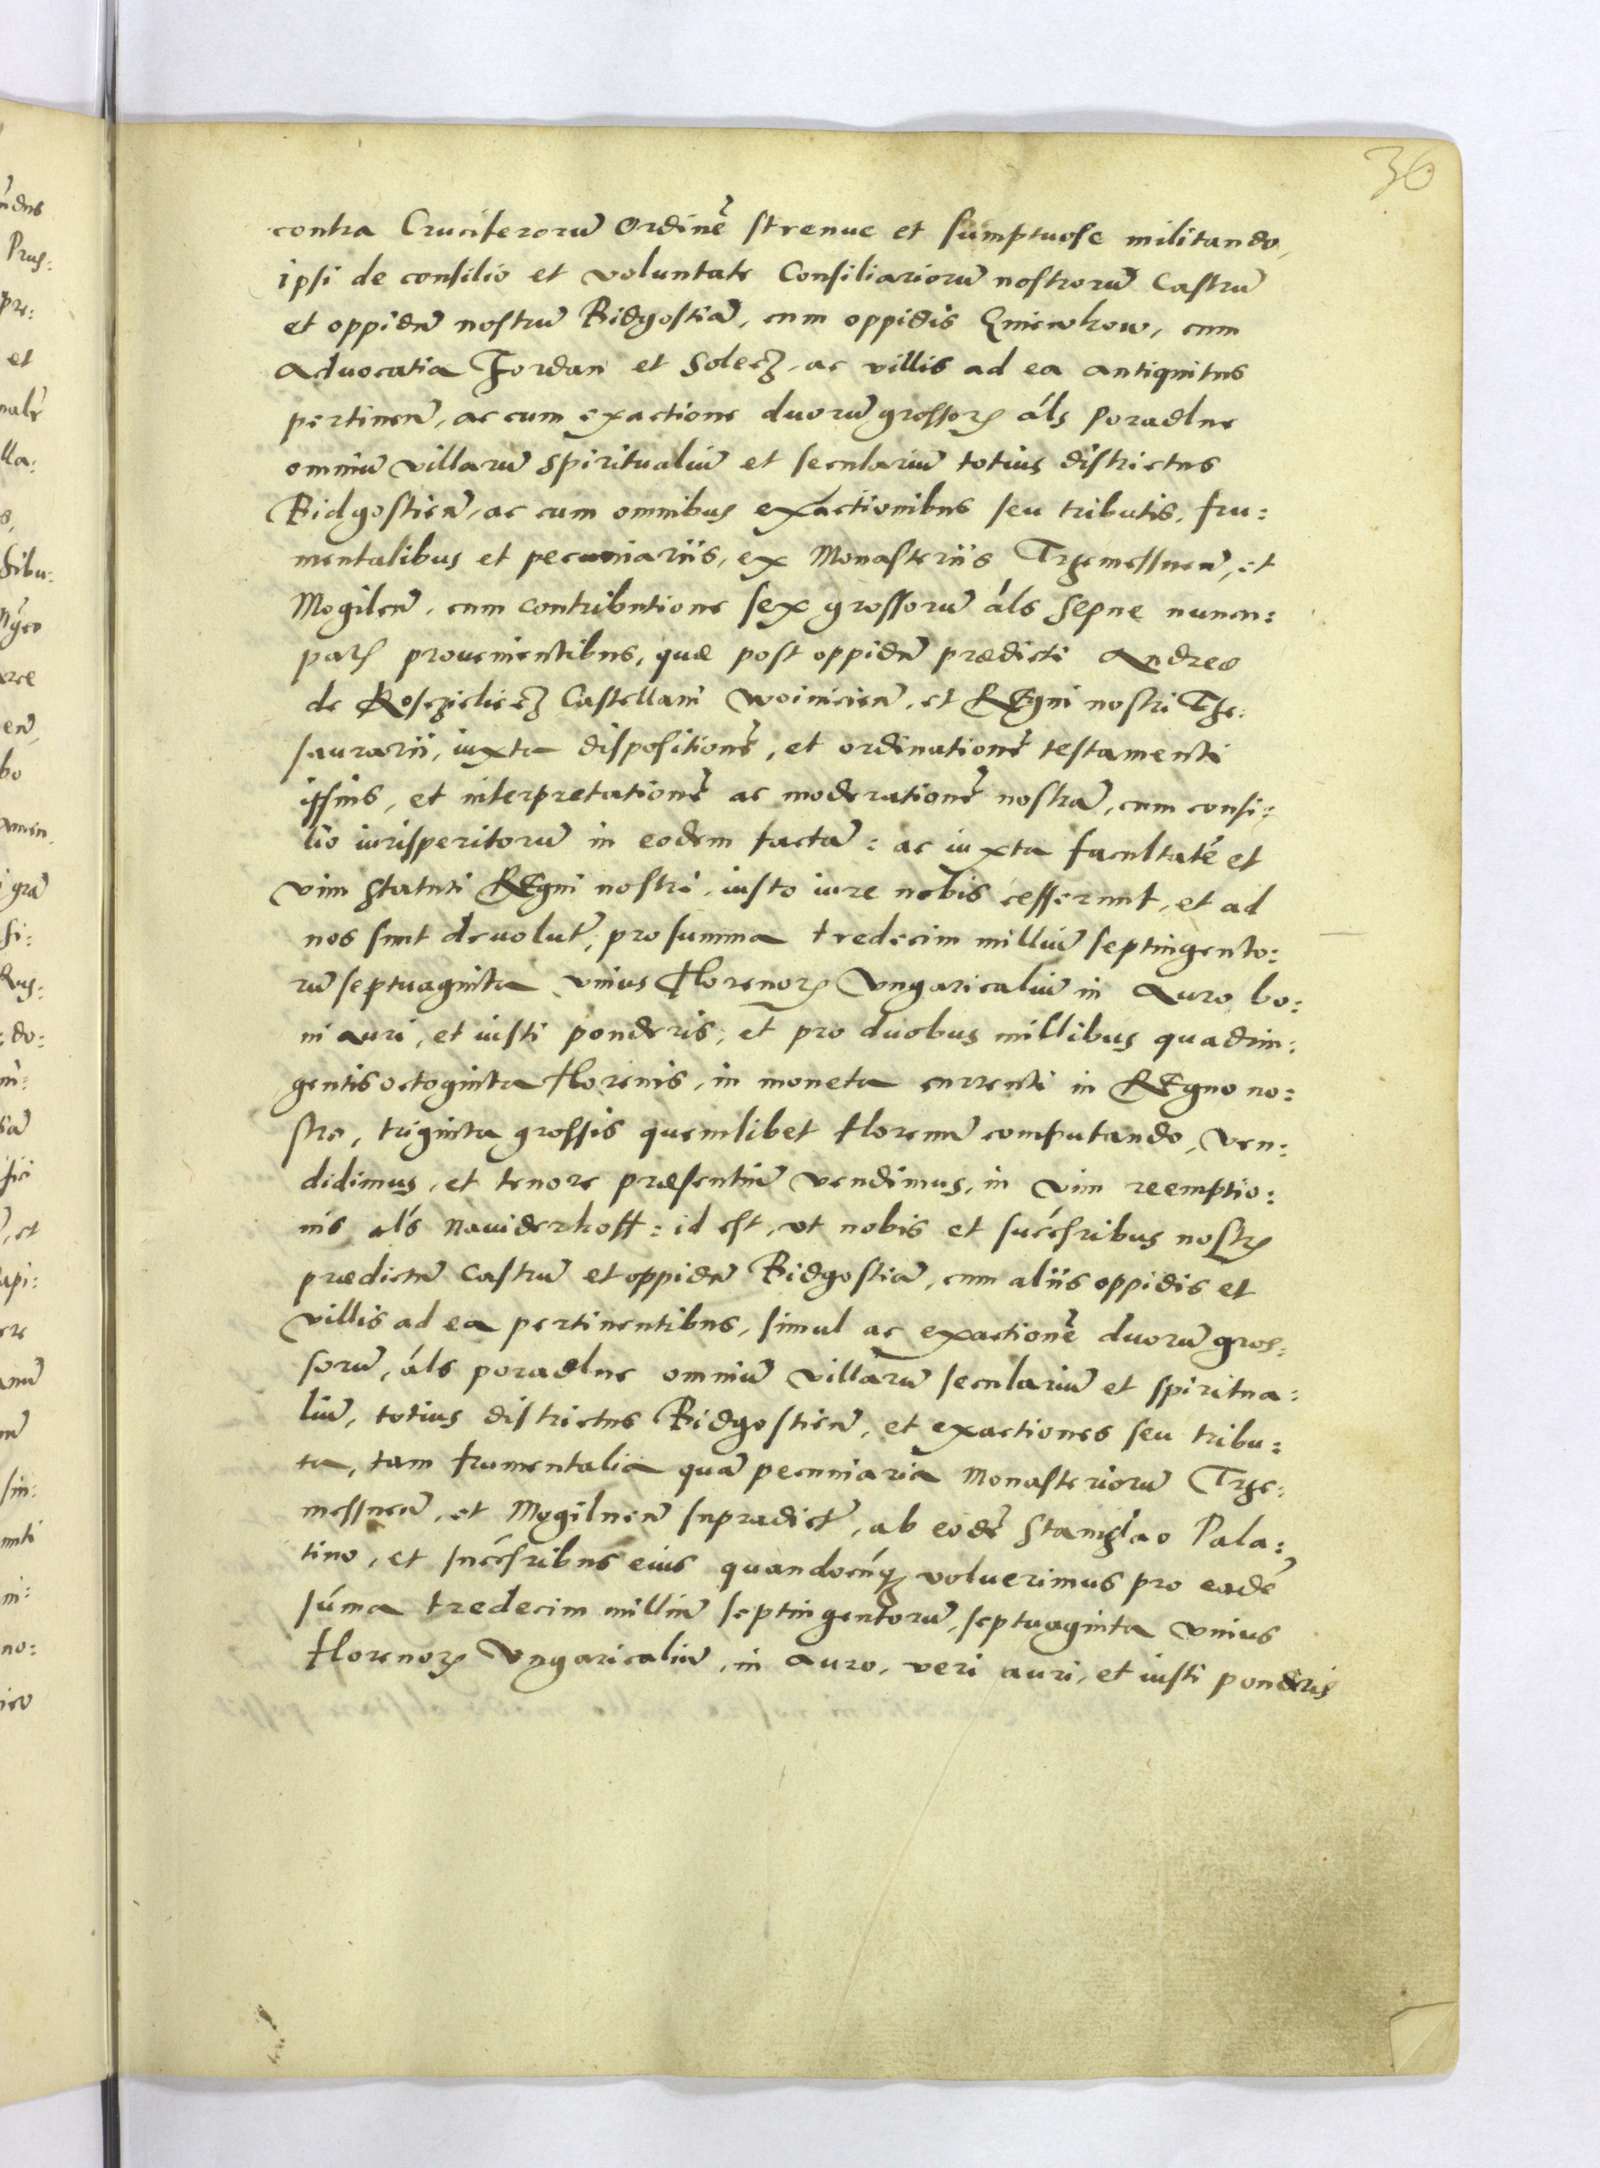 36
contra Cruciferorũ Ordinẽ strenue et sumptuose militando,
ipsi de consilio et voluntate Consiliariorũ nostrorũ Castrũ
et oppidũ nostrũ Bidgostiã, cum oppidis Gniewkow, cum
Aduocatia Fordan et Solecz, ac villis ad ea antiquitus
pertineñ, ac cum exactione duorũ grossorꝝ als Poradlne
omniũ villarũ spiritualiũ et seculariũ totius districtus
Bidgostieñ, ac cum omnibus exactionibus seu tributis, fru:
mentalibus et pecuniariis, ex Monasteriis Trzemessneñ, et
Mogileñ, cum contributione sex grossorũ als Sepne nuncu:
patꝭ prouenientibus, quæ post oppidũ prædicti Andreæ
de Castellani Woinicieñ, et REgni nostri The:
saurarii, iuxta dispositionẽ, et ordinationẽ testamenti
ipsius, et interpretationẽ ac moderationẽ nostrã, cum consi:
lio iurisperitorũ in eodem factã: ac iuxta facultatẽ et
vim Statuti REgni nostri, iusto iure nobis cesserunt, et ad
nos sunt deuolut̃, pro summa tredecim milliũ septingento:
rũ septuaginta vnius Florenorꝝ Vngaricaliũ in Auro bo:
ni auri, et iusti ponderis, et pro duobus millibus quadrin:
gentis octoginta Florenis, in moneta currenti in REgno no:
stro, triginta grossis quemlibet Florenũ computando, ven:
didimus, et tenore præsentiũ vendimus, in vim reemptio:
nis als Nawiderkoff: id est, vt nobis et succ̃sribus nostrꝭ
prædictũ Castrũ et oppidũ Bidgostiã, cum aliis oppidis et
villis ad ea pertinentibus, simul ac exactionẽ duorũ gros:
sorũ, als poradlne omniũ villarũ seculariũ et spiritua:
liũ, totius districtus Bidgostieñ, et exactiones seu tribu:
ta, tam frumentalia quã pecuniaria Monasteriorũ Trze:
messneñ, et Mogilneñ supradict̃, ab eodẽ Stanislao Pala:
tino, et succ̃sribus eius quandocũqꝫ voluerimus pro eadẽ
sũma tredecim milliũ septingentorũ, septuaginta vnius
Florenorꝝ Vngaricaliũ, in Auro, veri auri, et iusti ponderis